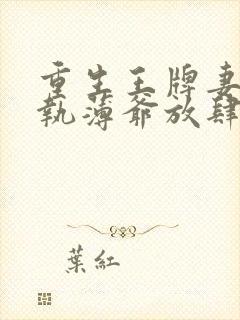 重生王牌妻
執薄爺放肆
葉紅